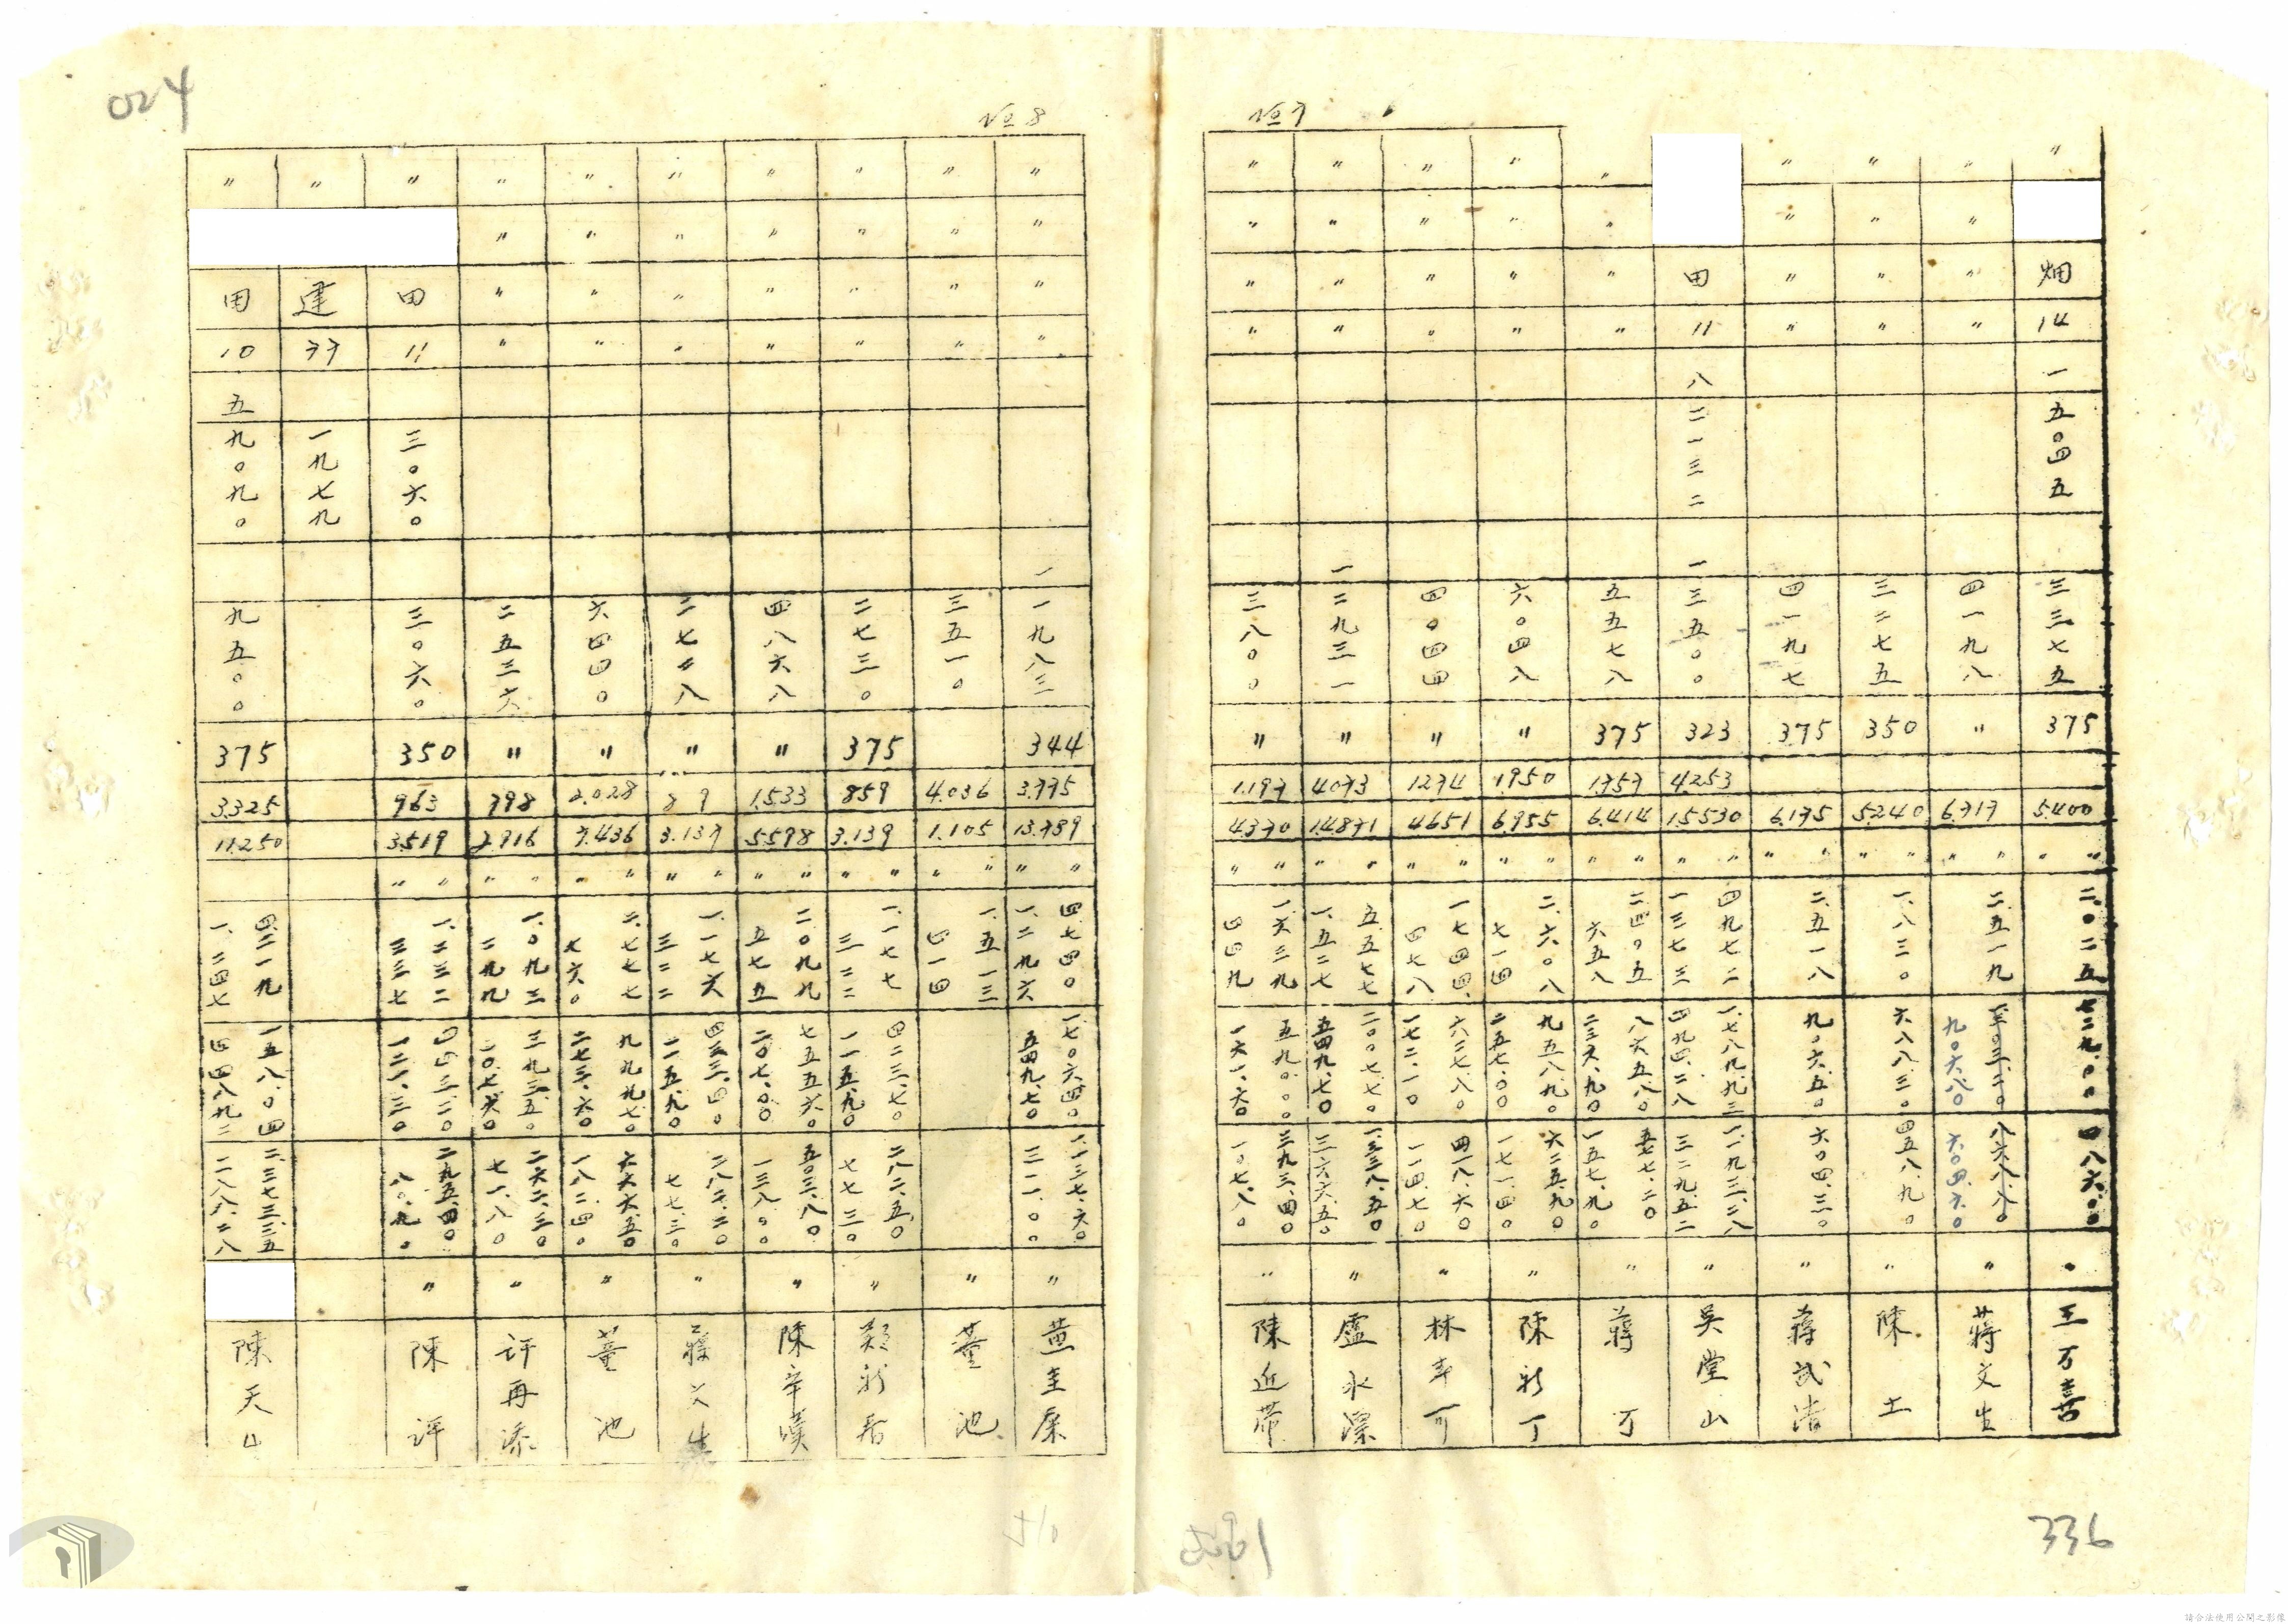 024
№ 7
〃 畑 14 一五〇四五 三三七五 375 5.400 〃 〃 二.〇二五 七二九.〇〇 四八六.〇〇 〃 王万喜
〃 〃 〃 〃 四一九八 〃 6.717 〃 〃 二.五一九 九〇六.八〇 八六八.八〇 六〇四.六〇 〃 蒋文生
〃 〃 〃 〃 三二七五 350 5.240 〃 〃 一.八三〇 六八八.三〇 四五八.九〇 〃 陳土
〃 〃 〃 〃 四一九七 375 6.175 〃 〃 二.五一八 九〇六.五〇 六〇四.三〇 〃 蒋武
田 11 八二一三二 一三五〇〇 323 4.253 15.530 〃 〃 四九七二 一三七三 一.七八九.九三 四九四.二八 一.一九三.二八 三二九.五二 〃 吳堂山
〃 〃 〃 〃 五五七八 375 1.757 6.414 〃 〃 二四〇五 六五八 八六五.八〇 二三六.九〇 五七七.二〇 一五七.九〇 〃 蒋丁
〃 〃 〃 〃 六〇四八 〃 1.950 6.955 〃 〃 二.六〇八 七一四 九五八.九〇 二五七.〇〇 六二五.九〇 一七一.四〇 〃 陳新丁
〃 〃 〃 〃 四〇四四 〃 1274 4651 〃 〃 一七四四 四七八 六二七.八〇 一七二.一〇 四一八.六〇 一一四.七〇 〃 林
〃 〃 〃 〃 一二九三一 〃 4073 14.871 〃 〃 五五七七 一.五二七 二〇〇七.七〇 五四九.七〇 一.三三八.五〇 三六六.五〇 〃 盧永漂
〃 〃 〃 〃 三八〇〇 〃 1.197 4.370 〃 〃 一.六三九 四四九 五九〇.〇〇 一六一.六〇 三九三.四〇 一〇七.八〇 〃 陳近帶
№ 8
〃 〃 〃 〃 一一九八三 344 3.775 13.789 〃 〃 四.七四〇 一.二九六 一七〇六.四〇 五四九.七〇 一.一三七.六〇 三一一.〇〇 〃 黄主
〃 〃 〃 〃 三五一〇 4.036 1.105 〃 〃 一.五一三 四一四 〃 董池
〃 〃 〃 〃 二七三〇 375 859 3.139 〃 〃 一.一七七 三二二 四二三.七〇 一一五.九〇 二八二.五〇 七七.三〇 〃 鄭新
〃 〃 〃 〃 四八六八 〃 1.533 5.598 〃 〃 二〇九九 五七五 七五五.六〇 二〇七.〇〇 五〇三.八〇 一三八.〇〇 〃 陳
〃 〃 〃 〃 二七二八 〃 3.137 〃 〃 一.一七六 三二二 四二三.四〇 一一五.九〇 二八二.二〇 七七.三〇 〃
〃 〃 〃 〃 六四四〇 〃 2.028 7.436 〃 〃 二.七七七 七六〇 九九九.七〇 二七三.六〇 六六六.五〇 一八二.四〇 〃 董池
〃 〃 〃 〃 二五三六 〃 798 2.916 〃 〃 一.〇九三 二九九 三九三.五〇 一〇七.六〇 二六二.三〇 七一.八〇 〃 許再添
〃 田 11 三〇六〇 三〇六〇 350 963 3.519 〃 〃 一.二三二 三三七 四四三.二〇 一二一.三〇 二九五.四〇 八〇.九〇 〃 陳評
〃 建 77 一九七九
〃 田 10 五九〇九〇 九五〇〇 375 3.325 11.250 四.二一九 一.二四七 一五一八.〇四 四四八.九二 陳天山
510
336
請合法使用公開之影像